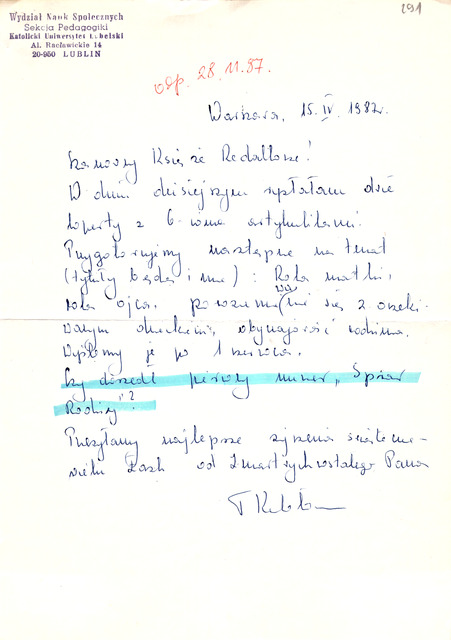 191
Wydział Nauk Społecznych
Sekcja Pedagogiki
Katolicki Uniwersytet Lubelski
Al. Racławickie 14
20-950 LUBLIN
odp. 28.11.87.
Warszawa, 15.IV.1987r.
Szanowny Księże Redaktorze!
W dniu dzisiejszym wysłałam dwie
koperty z 6-cioma artykułami.
Przygotowujemy następne na temat
(tytuły będą inne): Rola matki,
rola ojca, porozumiewanie się z oczeki-
wanym dzieckiem, obyczajowość rodzinna.
Wyślemy je po 1 czerwca.
Czy doszedł pierwszy numer „Spraw
Rodziny"?
Przesyłamy najlepsze życzenia świąteczne -
wielu Łask od Zmartwychwstałego Pana